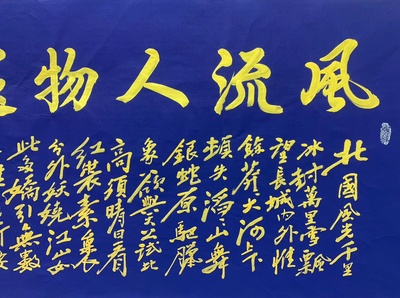 風流人物
北國風光千里
冰封萬里雪飄
望長城内外惟
餘莽大河上下
頓失滔山舞
銀蛇原馳臘
象欲與天公試比
高須晴日看
紅裝素裹
分外妖嬈江山如
此多嬌引無數